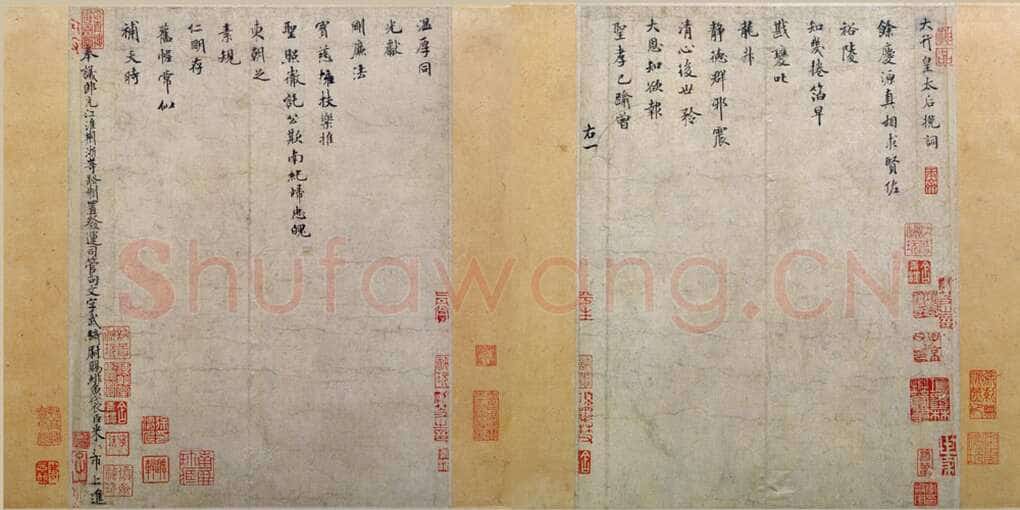 大行皇太后挽詞
餘慶源真相求賢佐
裕陵
知幾捲箔早
戡變叱
龍升
靜德群邪震
清心後世矜
大恩知欲報
聖孝已踰曾
右一
溫厚同
光獻
剛廉法
寶慈擁扶樂推
聖照徹詑公欺南紀歸忠魄
東朝之
素規
仁明存
舊幄常似
補天時
奉議郎充江淮荊浙等路制置發運司管勾文字武騎尉賜緋魚袋臣米芾上進
Shufawang.CN